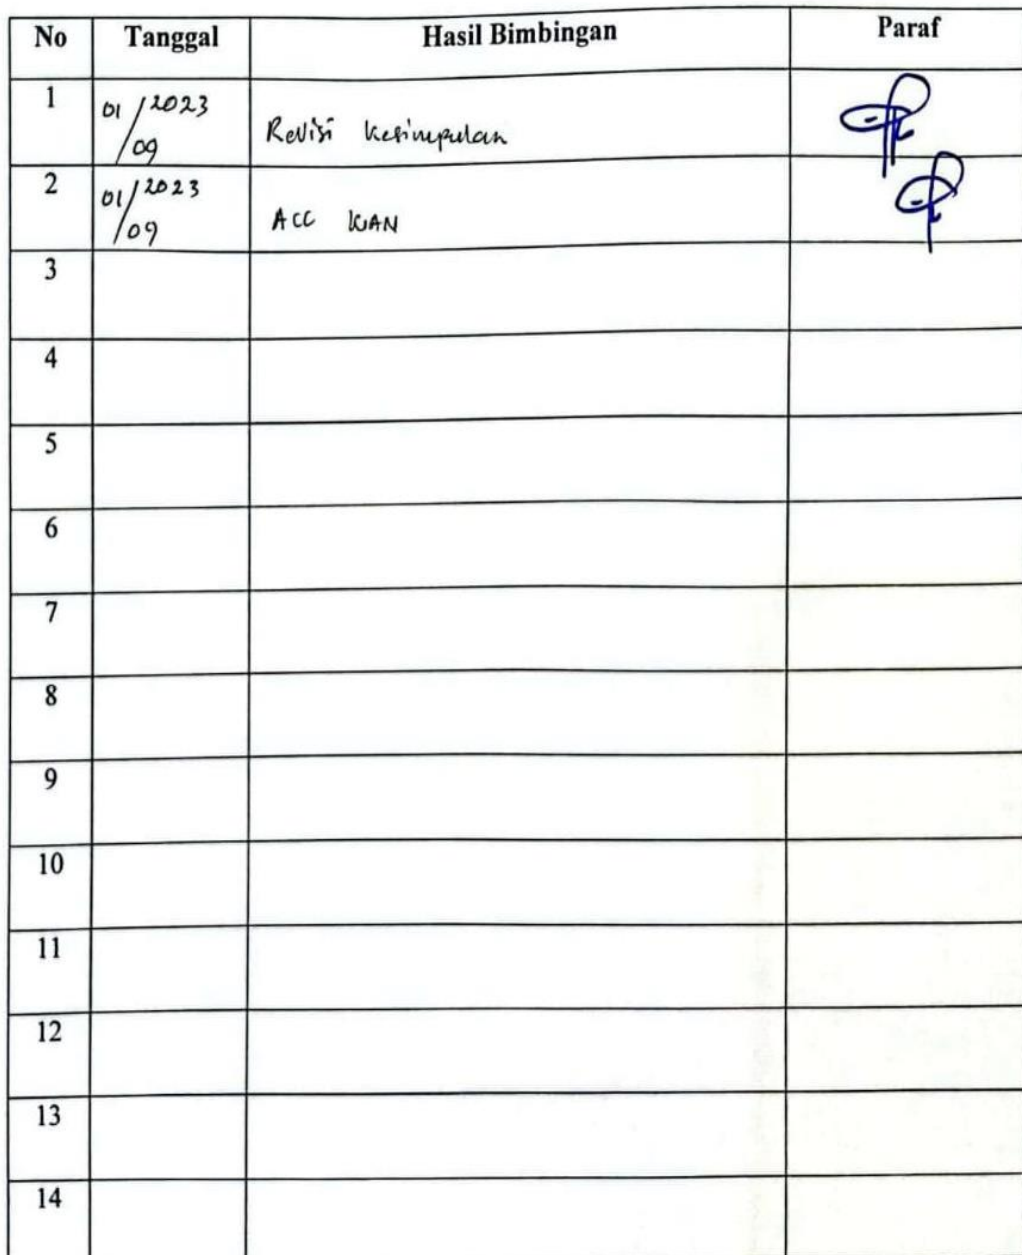 No Tanggal Hasil Bimbingan Paraf
1 01/09/2023 Revisi kesimpulan
2 01/09/2023 ACC
3
4
5
6
7
8
9
10
11
12
13
14